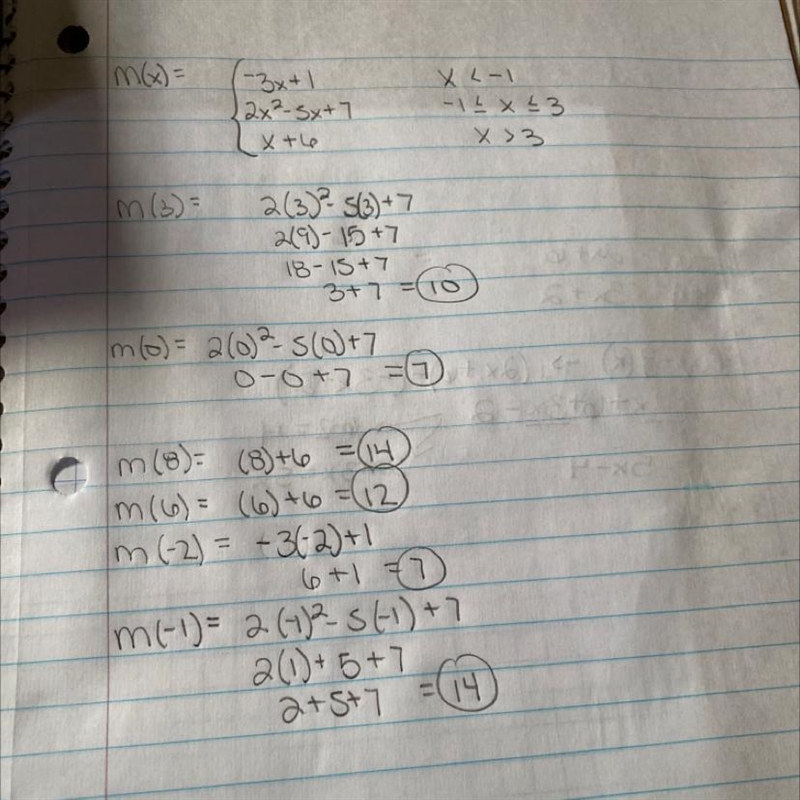 m(x)= { -3x+1 x < -1
2x²-5x+7 -1 ≤ x ≤ 3
x+6 x > 3
m(3)= 2(3)²- 5(3)+7
2(9)-15+7
18-15+7
3+7 = 10
m(0)= 2(0)²- 5(0)+7
0-0+7 = 7
m(8)= (8)+6 = 14
m(6)= (6)+6 = 12
m(-2)= -3(-2)+1
6+1 = 7
m(-1)= 2(-1)²- 5(-1)+7
2(1)+5+7
2+5+7 = 14